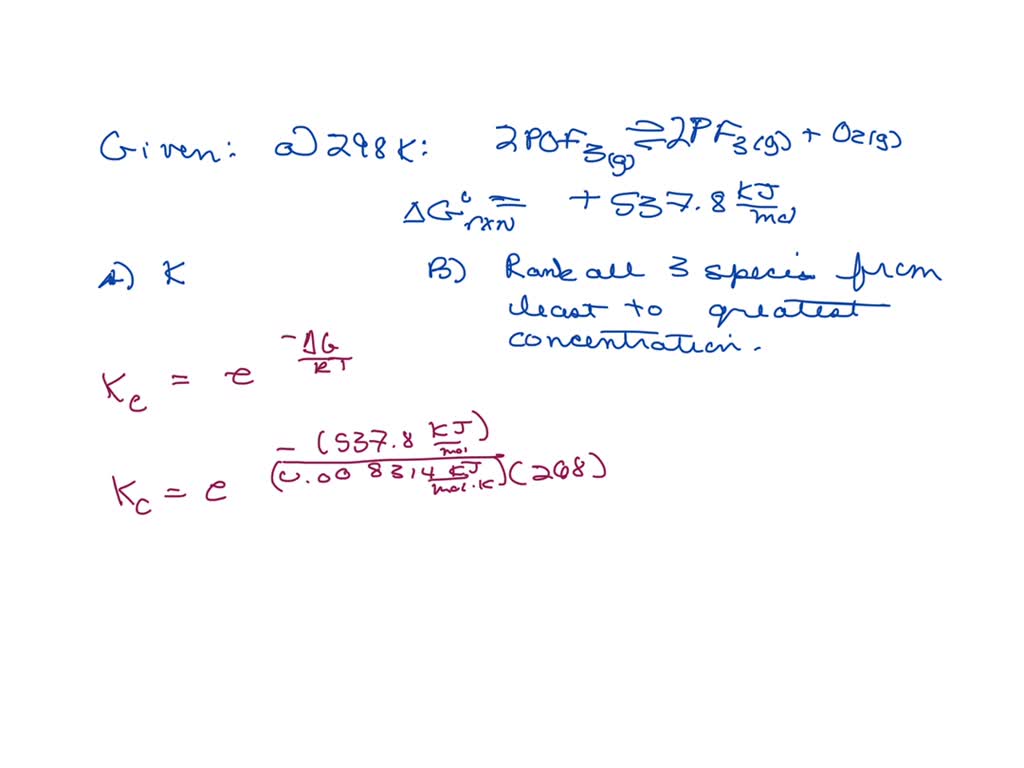 Given: a) 298K: 2POF₃(g) ⇌ 2PF₃(g) + O₂(g)
ΔG°rxn = + 537.8 KJ/mol
A) K B) Rank all 3 species from
least to greatest
concentration.
Kc = e^(-ΔG/RT)
Kc = e^(-(537.8 KJ/mol)/(0.008314 KJ/mol·K)(298))